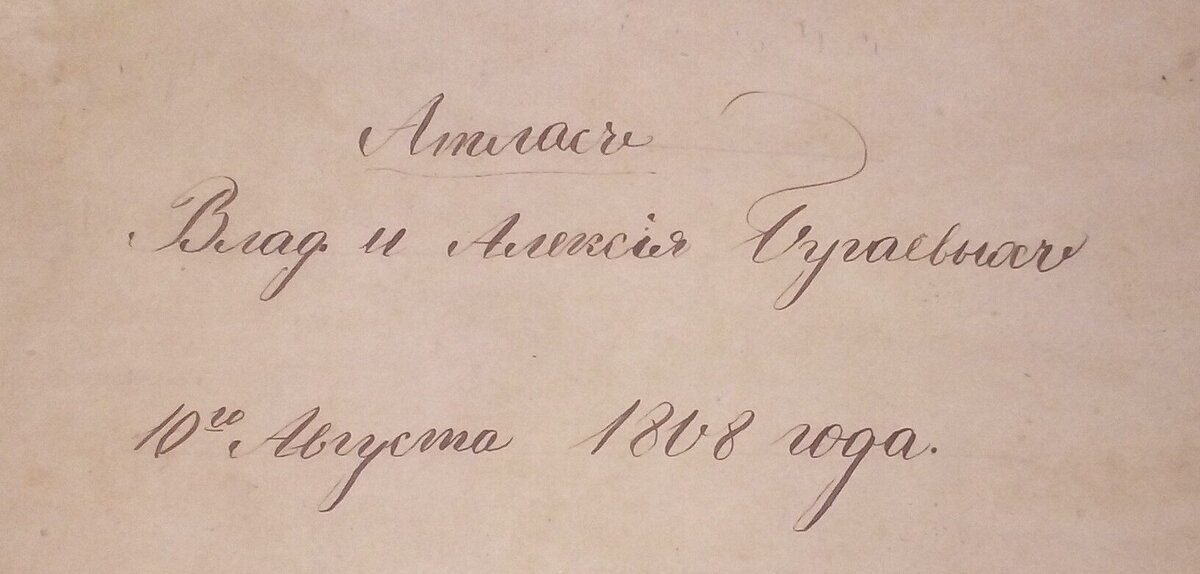 Атласъ
Влад. и Алексія Бугаевыхъ
10го Августа 1868 года.